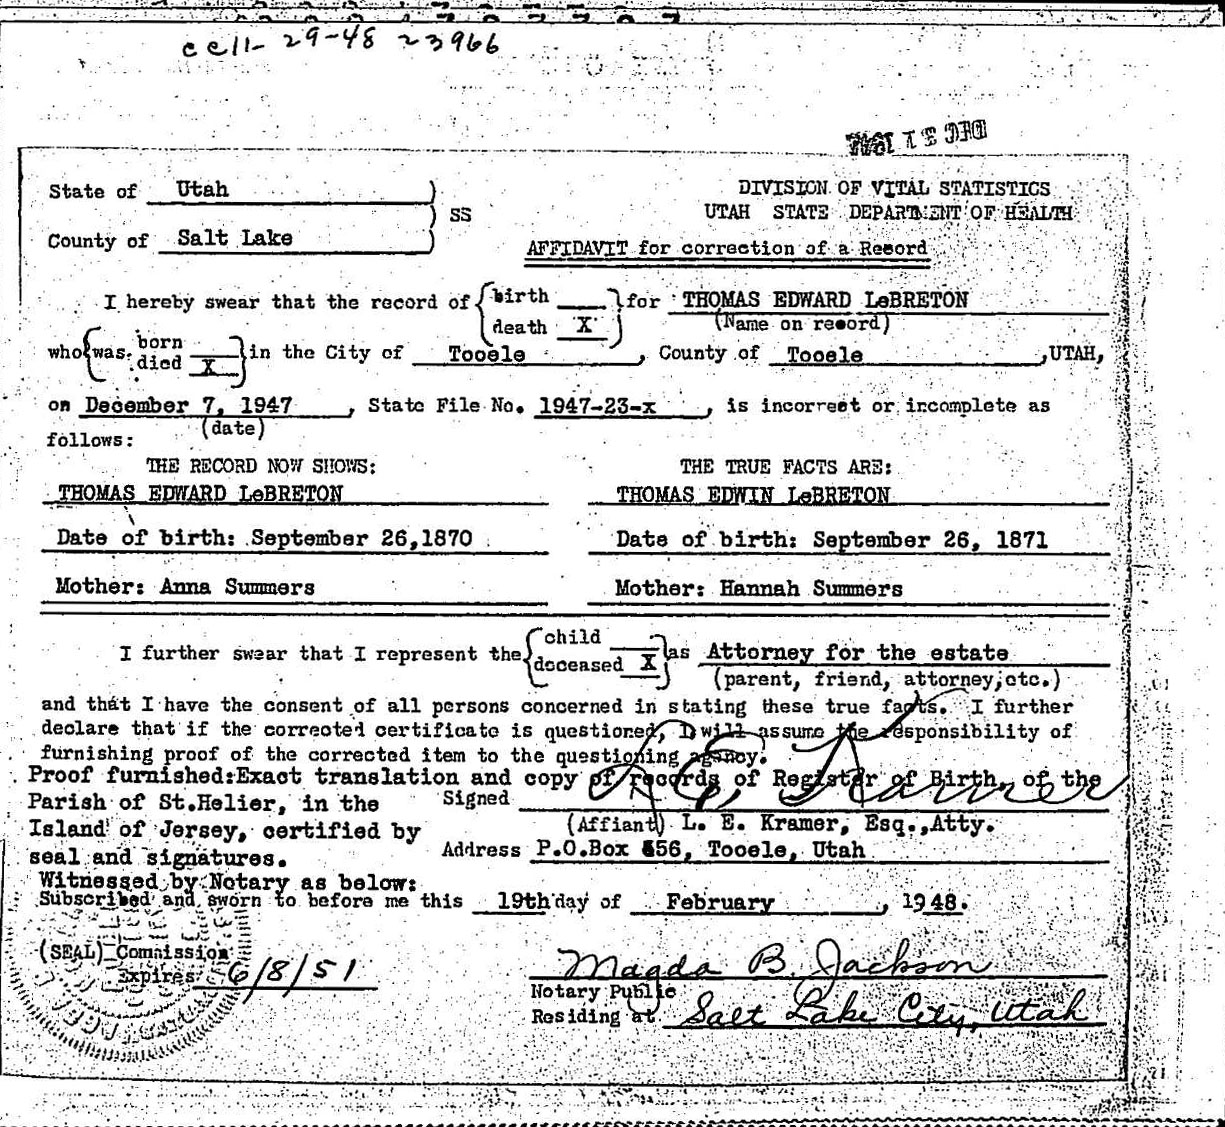 cc 11-29-48 23966
State of Utah ) SS
DIVISION OF VITAL STATISTICS
UTAH STATE DEPARTMENT OF HEALTH
County of Salt Lake )
AFFIDAVIT for correction of a Record
I hereby swear that the record of { birth ___ death X } for THOMAS EDWARD LeBRETON
(Name on record)
who { was born ___ died X } in the City of Tooele, County of Tooele, UTAH,
on December 7, 1947, State File No. 1947-23-x, is incorrect or incomplete as
(date)
follows:
THE RECORD NOW SHOWS: THE TRUE FACTS ARE:
THOMAS EDWARD LeBRETON THOMAS EDWIN LeBRETON
Date of birth: September 26,1870 Date of birth: September 26, 1871
Mother: Anna Summers Mother: Hannah Summers
I further swear that I represent the { child ___ deceased X } as Attorney for the estate
(parent, friend, attorney, etc.)
and that I have the consent of all persons concerned in stating these true facts. I further
declare that if the corrected certificate is questioned, I will assume the responsibility of
furnishing proof of the corrected item to the questioning agency.
Proof furnished:Exact translation and copy of records of Register of Birth, of the
Parish of St.Helier, in the
Island of Jersey, certified by
seal and signatures.
Witnessed by Notary as below:
Signed L E Kramer
(Affiant) L. E. Kramer, Esq.,Atty.
Address P.O.Box 656, Tooele, Utah
Subscribed and sworn to before me this 19th day of February, 1948.
(SEAL) Commission
expires 6/8/51
Magda B. Jackson
Notary Public
Residing at Salt Lake City, Utah